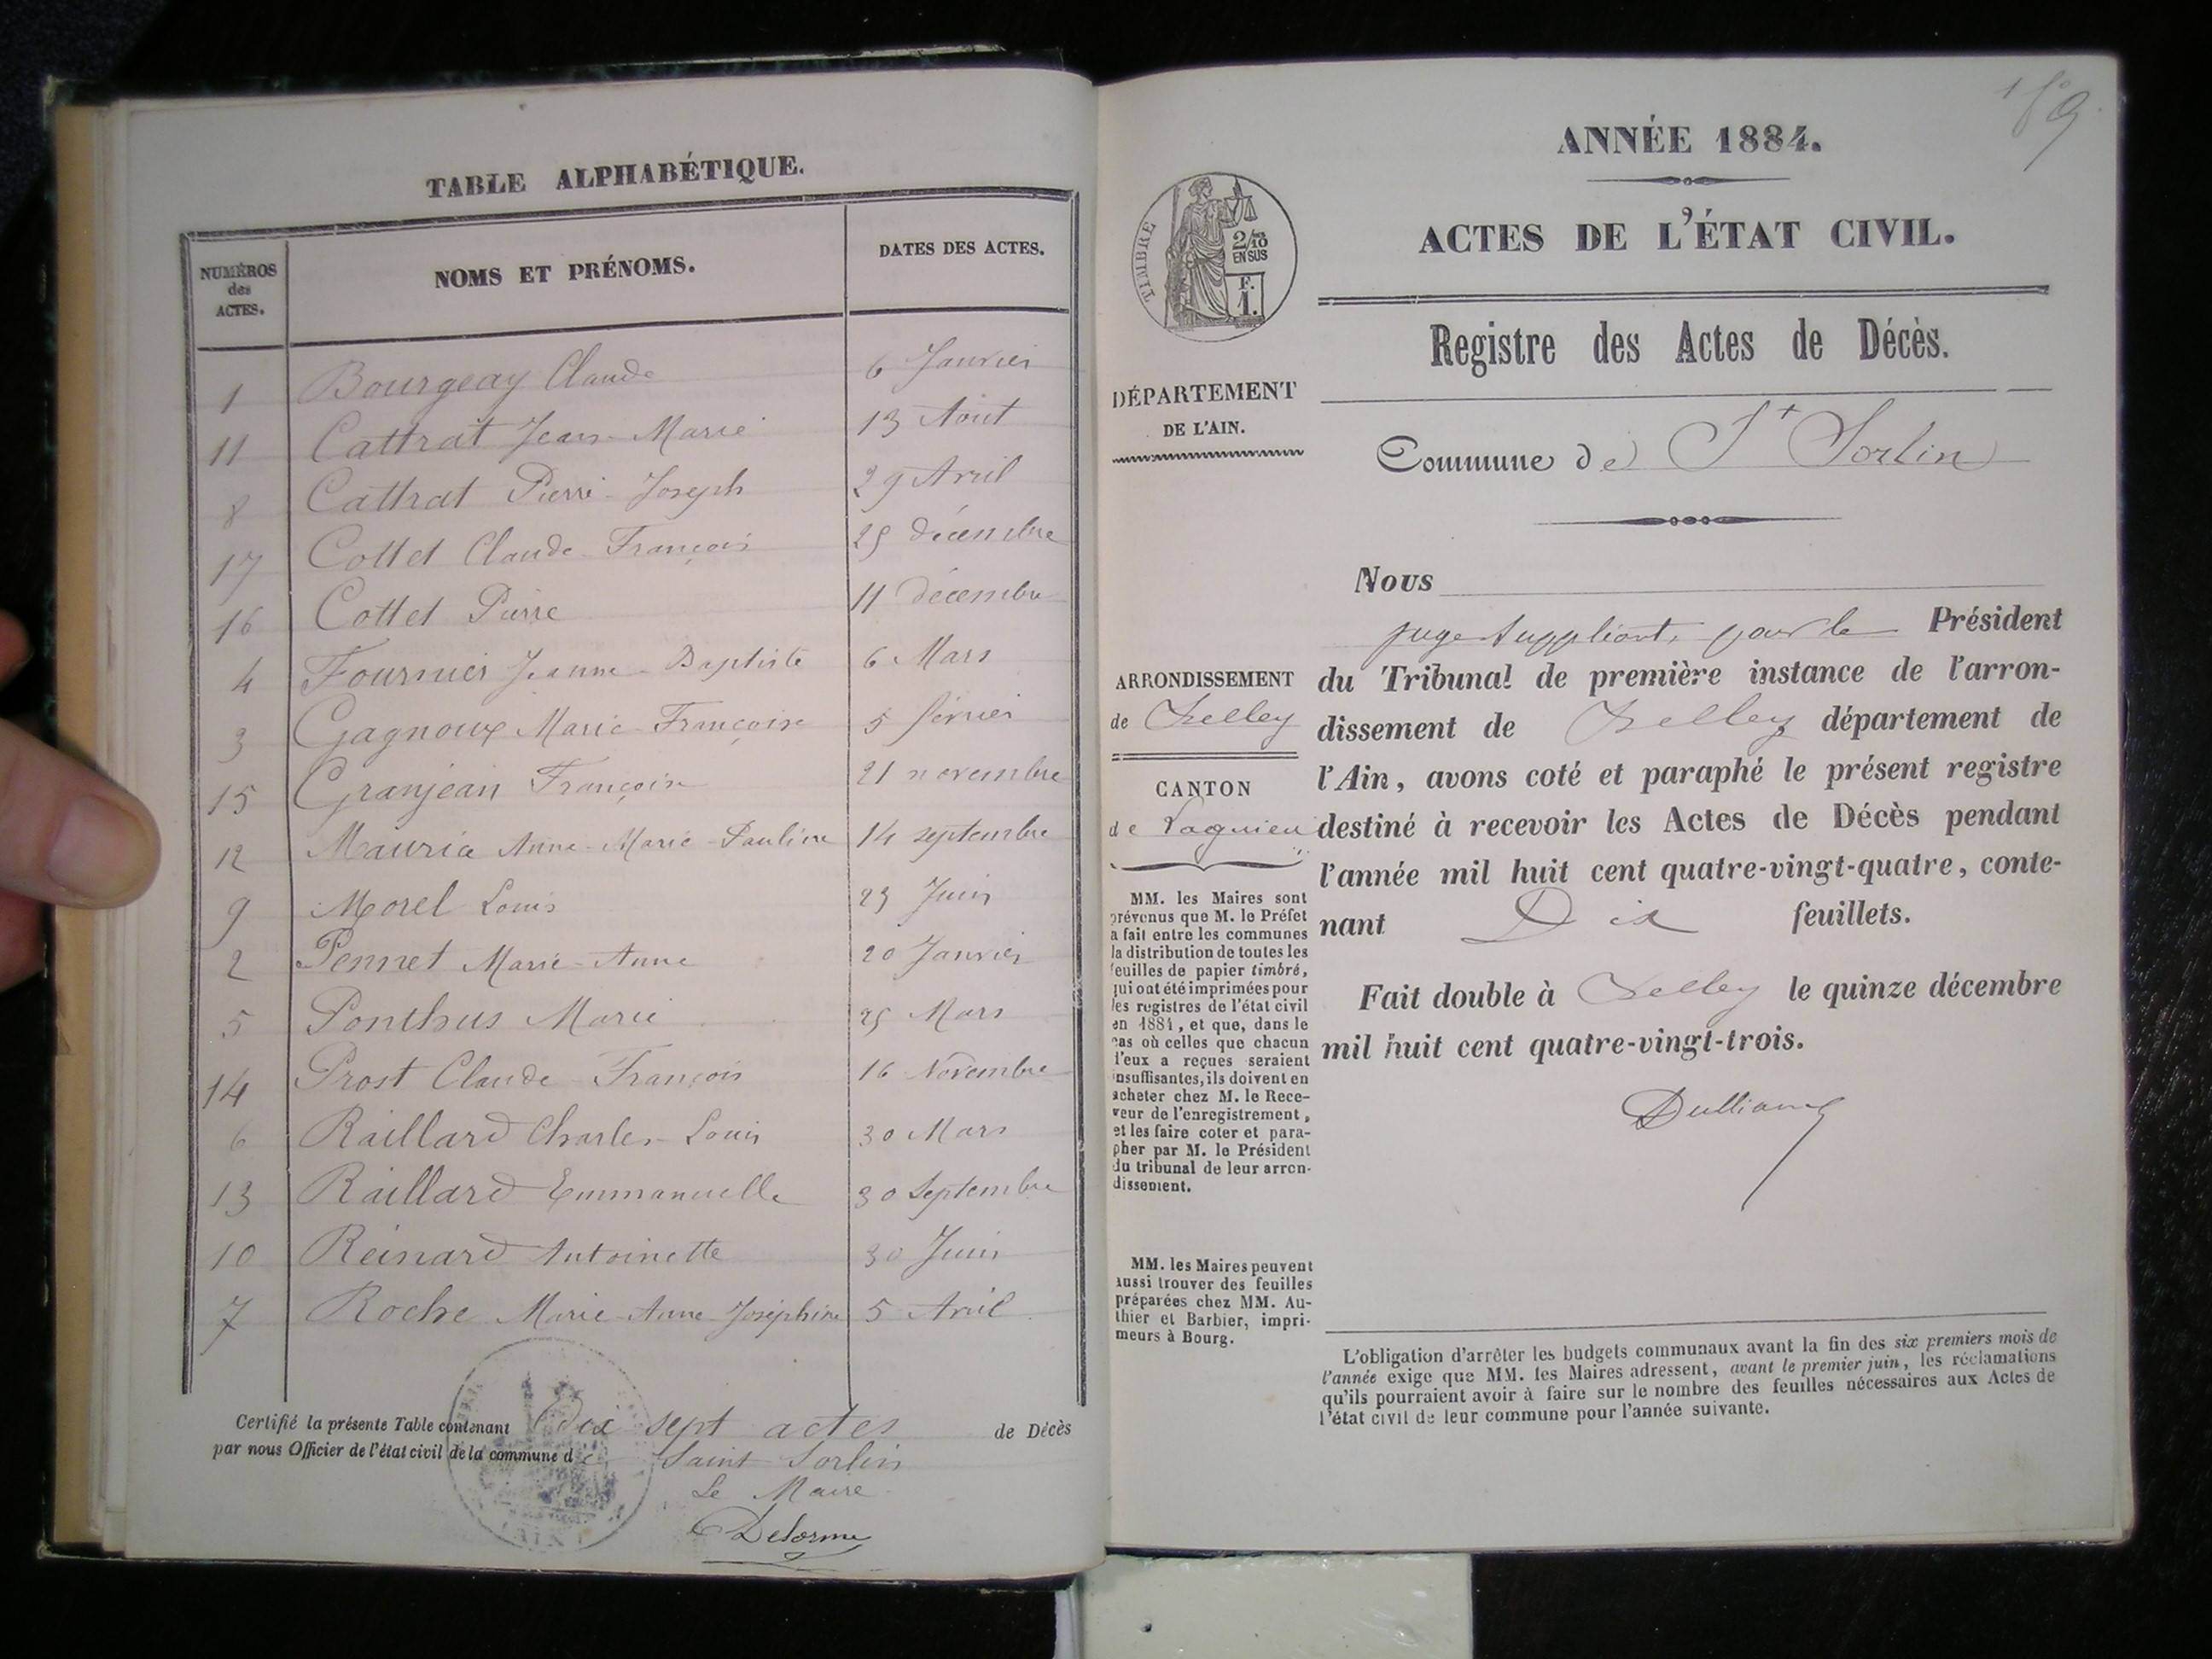 TABLE ALPHABÉTIQUE.
NUMÉROS des ACTES. NOMS ET PRÉNOMS. DATES DES ACTES.
1 Bourgeay Claude 6 Janvier
11 Cattrat Jean-Marie 13 Août
8 Cattrat Pierre-Joseph 29 Avril
17 Cottet Claude François 25 décembre
16 Cottet Pierre 11 décembre
4 Fournier Jeanne-Baptiste 6 Mars
3 Gagnoux Marie-Françoise 5 février
15 Granjean Françoise 21 novembre
12 Mauria Anne-Marie-Pauline 14 septembre
9 Morel Louis 23 Juin
2 Pennet Marie-Anne 20 Janvier
5 Ponthus Marie 25 Mars
14 Prost Claude François 16 Novembre
6 Raillard Charles-Louis 30 Mars
13 Raillard Emmanuelle 30 septembre
10 Reinard Antoinette 30 Juin
7 Roche Marie-Anne-Joséphine 5 Avril
Certifié la présente Table contenant dix sept actes de Décès
par nous Officier de l'état civil de la commune de Saint Sorlin
Le Maire
Delorme
ANNÉE 1884.
ACTES DE L'ÉTAT CIVIL.
TIMBRE
2/10 EN SUS
F. 1.
Registre des Actes de Décès.
DÉPARTEMENT
DE L'AIN.
Commune de St Sorlin
Nous
juge suppléant, pour le Président
ARRONDISSEMENT
de Belley
CANTON
de Lagnieu
du Tribunal de première instance de l'arron-
dissement de Belley département de
l'Ain, avons coté et paraphé le présent registre
destiné à recevoir les Actes de Décès pendant
l'année mil huit cent quatre-vingt-quatre, conte-
nant Dix feuillets.
Fait double à Belley le quinze décembre
mil huit cent quatre-vingt-trois.
MM. les Maires sont
prévenus que M. le Préfet
a fait entre les communes
la distribution de toutes les
feuilles de papier timbré,
qui ont été imprimées pour
les registres de l'état civil
en 1884, et que, dans le
cas où celles que chacun
d'eux a reçues seraient
insuffisantes, ils doivent en
acheter chez M. le Rece-
veur de l'enregistrement,
et les faire coter et para-
pher par M. le Président
du tribunal de leur arron-
dissement.
MM. les Maires peuvent
aussi trouver des feuilles
préparées chez MM. Au-
thier et Barbier, impri-
meurs à Bourg.
L'obligation d'arrêter les budgets communaux avant la fin des six premiers mois de
l'année exige que MM. les Maires adressent, avant le premier juin, les réclamations
qu'ils pourraient avoir à faire sur le nombre des feuilles nécessaires aux Actes de
l'état civil de leur commune pour l'année suivante.